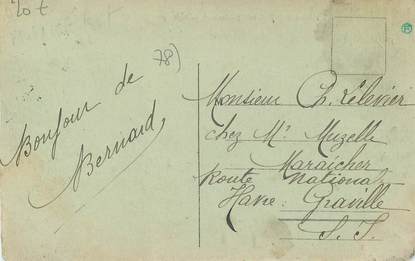 20 €
78)
Bonjour de
Bernard,
Monsieur Ch. Lelevier
chez Mr Muzelle
Maraicher
Route National
Havre : Graville
S. I.